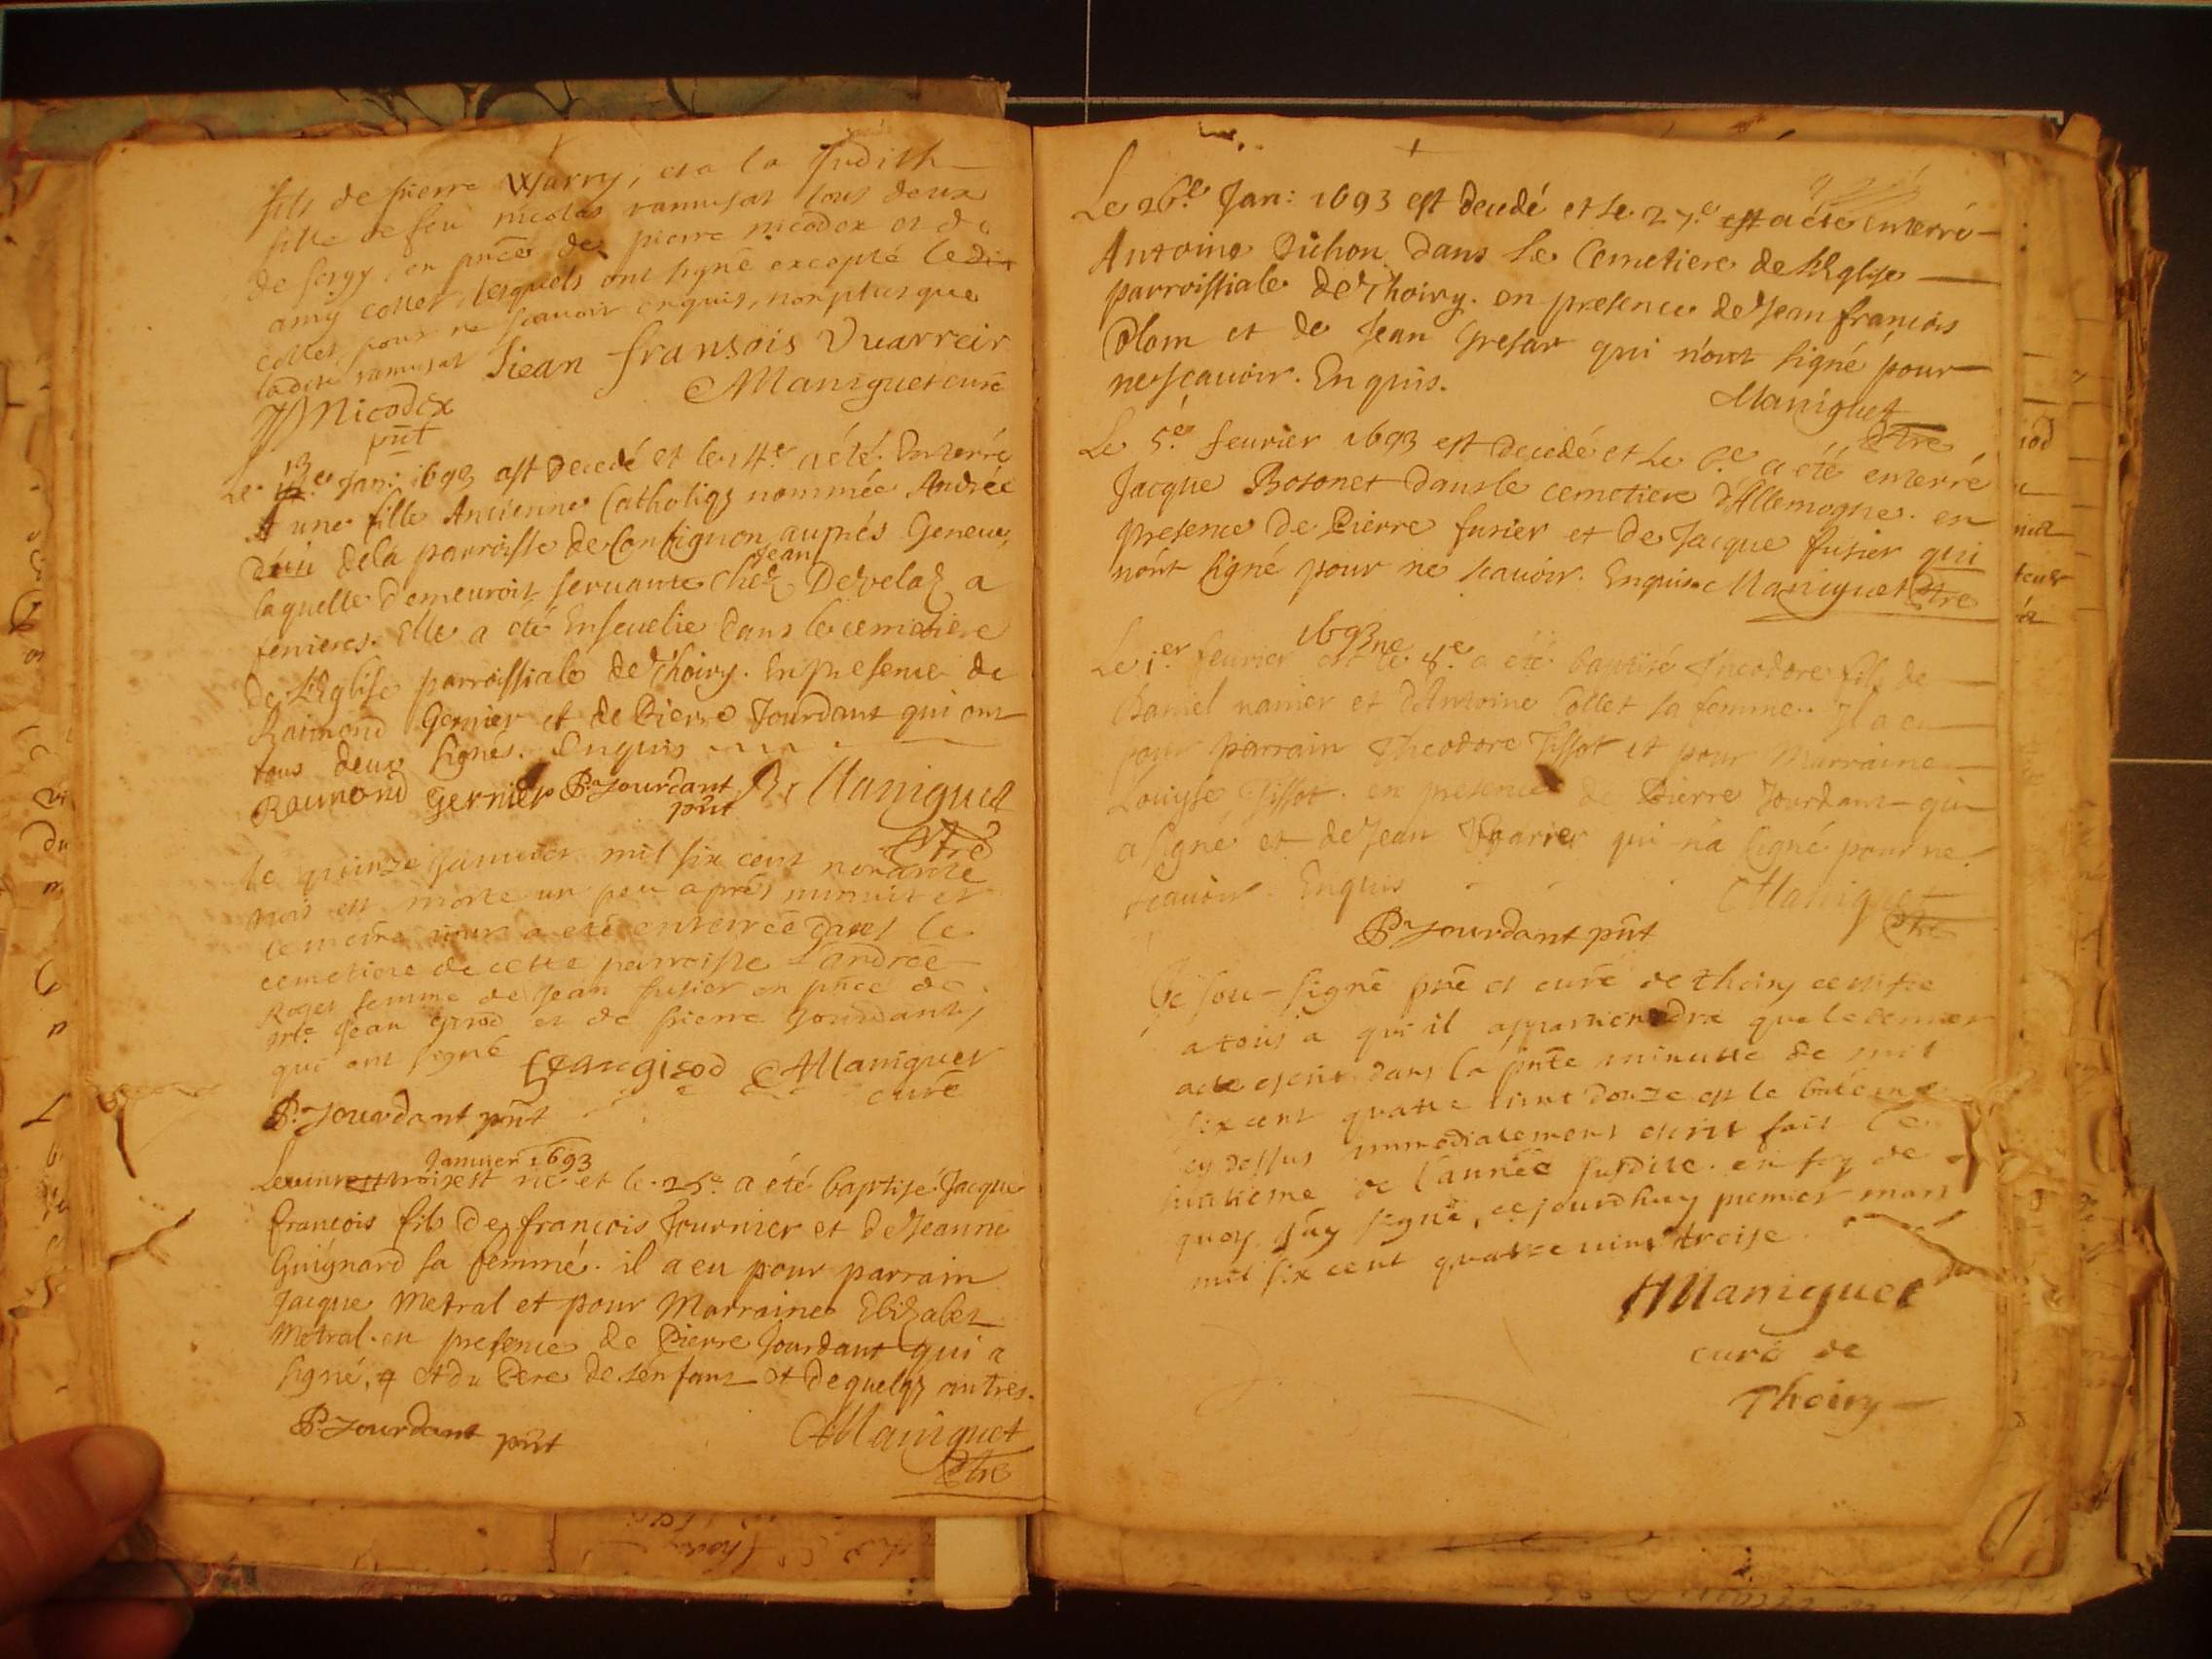 fils de pierre Warry, et a la Judith
fille de feu nicolas ramusat tous deux
de sergy, en pnce de pierre nicodex et de
amy collet, lesquels ont signé excepté ledit
collet pour ne scauoir enquis, non plus que
ladite ramusat Jiean fransois Vuarreir
Maniguet curé
Nicodex
pnt
13
Le e Jan: 1693 est Decedé et le 14e a été Enterré
une fille Ancienne Catholiq3 nommée Andrée
dela parroisse de Confignon auprés Geneue,
Jean
laquelle demeuroit seruante chez Devela3 a
fenieres. Elle a été Enseuelie dans le cemetiere
de l'Eglise parroissiale de Thoiry. En presence de
Raimond Gernier et de Pierre Jourdant qui ont
tous deux signés. Enquis
Raimond Gernier P. Jourdant Maniguet
pnt
Ptre
Le quinze januier mil six cent nonante
trois est morte un peu aprés minuit et
le meme jour a eté enterrée dans le
cemetiere de cette parroisse Landrée
Roget femme de Jean fusier en pnce de
mre Jean girod et de pierre Jourdant,
qui ont signé Jean girod Maniguet
curé
P. Jourdant pnt
Januier 1693
Le vint trois est né et le 25e a été baptisé Jacque
francois fils de francois Fournier et de Jeanne
Guignard sa femme. il a eu pour parrain
Jacque Metral et pour Marraine Elizabet
Metral. en presence de Pierre Jourdant qui a
signé, & et du Pere de lenfant et de quelq3 autres.
P. Jourdant pnt Maniguet
Ptre
Le 26e Jan: 1693 est decedé et le 27e est a été enterré
Antoine Pichon dans le Cemetiere de l'Eglise
parroissiale de Thoiry. en presence de Jean francois
Olom et de Jean Gresar qui n'ont signé pour
ne scauoir. Enquis.
Maniguet
Ptre
Le 5e feurier 1693 est decedé et Le 6e a été enterré
Jacque Bosonet dans le cemetiere d'Allemogne. en
presence de Pierre fusier et de Jacque fusier qui
n'ont signé pour ne scauoir. Enquis Maniguet Ptre
1693 ne
Le 1er feurier est le 8e a été baptisé Theodore fils de
Daniel namer et d'Antoine Collet sa femme. Il a eu
pour parrain Theodore Tissot et pour Marraine
Louyse Tissot. en presence de Pierre Jourdant qui
a signé et de Jean Vuarier qui n'a signé pour ne
scauoir. Enquis
Maniguet
Ptre
P. Jourdant pnt
Je sou-signé pre et curé de thoiry certifie
a tous a qui il appartiendra que le dernier
acte escrit dans la pnte minutte de mil
six cent quatre vint douze est le
cy dessus immediatement escrit fait le
huitieme de l'année susdite. en foy de
quoy j'ay signé, ce jourdhuy premier mars
mil six cent quatre vint treise.
Maniguet
curé de
Thoiry